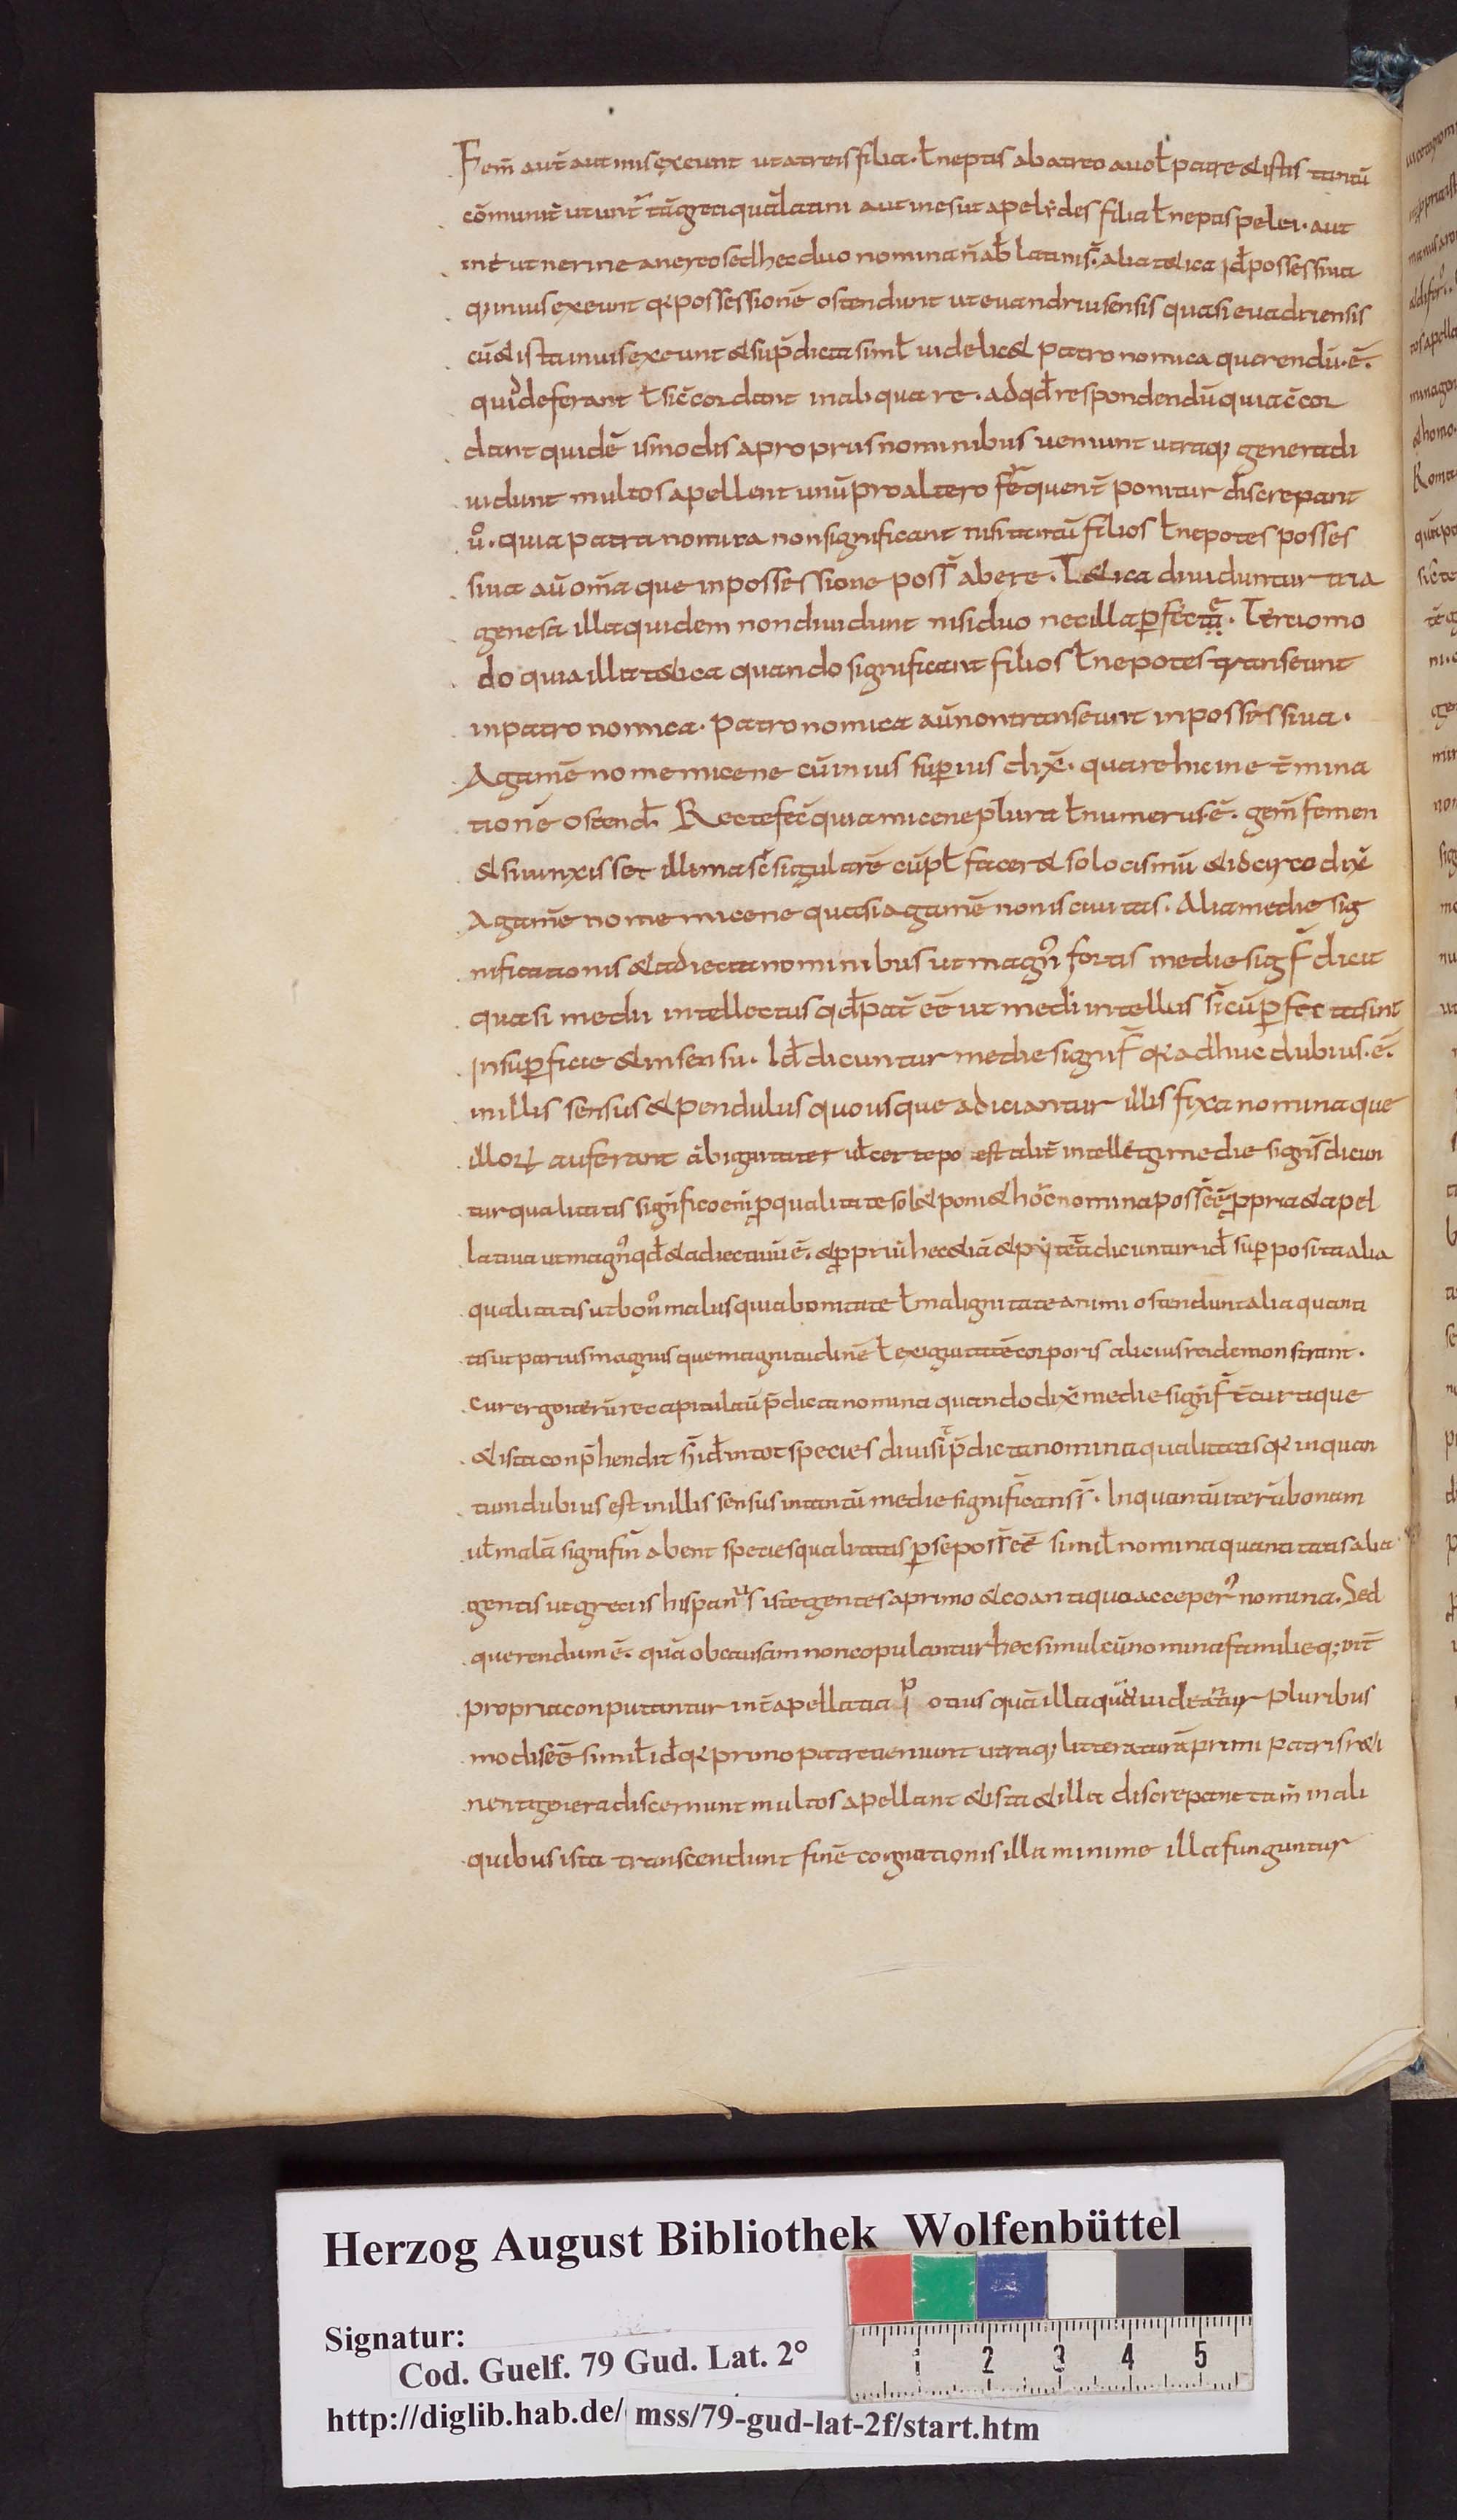 Fem̄ aut̄ aut inis exeunt ut atreis filia. ł neptis ab atreo auo ł patre & istis tantū
cōmunit̄ utunt̄ tā greci quā latini aut ines ut apeleides filia ł neptis pelei. aut
ine ut nerine anereo sed hec duo nomina n̄ ab latinis. alia & lica id possessiua
q; in ius exeunt qr possessionē ostendunt ut euandrius ensis quasi euadriensis
cū & ista in uis exeunt & sup̄dicta simł uidelic& patronomica querendū. ē.
quid deferant ł sic̄ cordant in aliqua re. ad qd̄ respondendū quia c̄cor
dant quidē ismodis a propriis nominibus ueniunt utraq; genera di
uidunt multos apellent unū pro altero frequent̄ ponitur discrepant
ů. quia patranomica non significant nisi tantū filios ł nepotes posses
siua aū om̄a que in possessione poss̄ abere. T & ica diuiduntur tria
genera illa quidem non diuidunt nisi duo nec illa perfectæ. Tertio mo
do quia illa t&ica quando significant filios ł nepotes transeunt
in patronomica. patronomica aū non transeunt in possessiua.
Agamēnome micene cū in ius superius dix̄. quare hic in e t̄mina
tionē ostend̄. Recte fec̄ quia micene plura ł numerus. ē. gen̄ femen
& si iunxisset illi masc̄ singularē cū pł facer& solocismū & idcirco dix̄
Agamēnome micene quasi agamēnonis ciuitas. Alia medie sig
nificationis & adiecta nominibus ut magn̄ fortis medie sig f̄ dicit
quasi medii intellectus qd̄ pat̄ eē ut medi intellus s̄ cū perfecta sint
In superficie & in sensu. Id̄ dicuntur medie signif̄ qr adhuc dubius. ē.
in illis sensus & pendulus quousque adiciantur illis fixa nomina que
illorꝝ auferant ābiguitatet uł certepo est alit̄ intellegi medie signis̄ dicun
tur qualitatis significo eni p qualitate sol& poni & hoc̄ nomina poss̄ eē ppria & apel
latiua ut magn̄ qd̄ & adiectiuū ē. & ppriū hec & iā & pyteta dicuntur id̄ superposita alia
qualitatis ut bon̄ malus quia bonitate ł malignitate animi ostendunt alia quanti
tis ut paruus magnus que magnitudinē ł exiguitatē corporis alicuius rei demonstrant.
Cur ergo iterū recapitulaū p̄dicta nomina quando dix̄ medie signif̄ t̄cur atque
& ista conp̄hendit s̄ id̄ in tot species diuisit p̄dicta nomina qualitatis qr inquan
tum dubius est in illis sensus intantū medie significantis s̄. Inquantū iterū bonam
uł malā signifin̄ abent species qualitatis p se poss̄ eē simił nomina quantitatis alia
gentis ut grecus hispanus iste gentes aprimo & co antiquo acceper̄ nomina. Sed
querendum ē. quā ob causam non copulantur hec simul cū nomina familie q; int̄
propria conputantur int̄ apellatia p otius quā illa quā uideatur pluribus
modis eē simił id̄ qr pro uno patre ueniunt utraq; litteraturā primi patris reti
nent genera discernunt multos apellant & ista & illa discrepant tam̄ in ali
quibus ista transcendunt finē cognationis illa minime illa funguntur
Herzog August Bibliothek Wolfenbüttel
Signatur:
Cod. Guelf. 79 Gud. Lat. 2°
http://diglib.hab.de/ mss/79-gud-lat-2f/start.htm
1 2 3 4 5